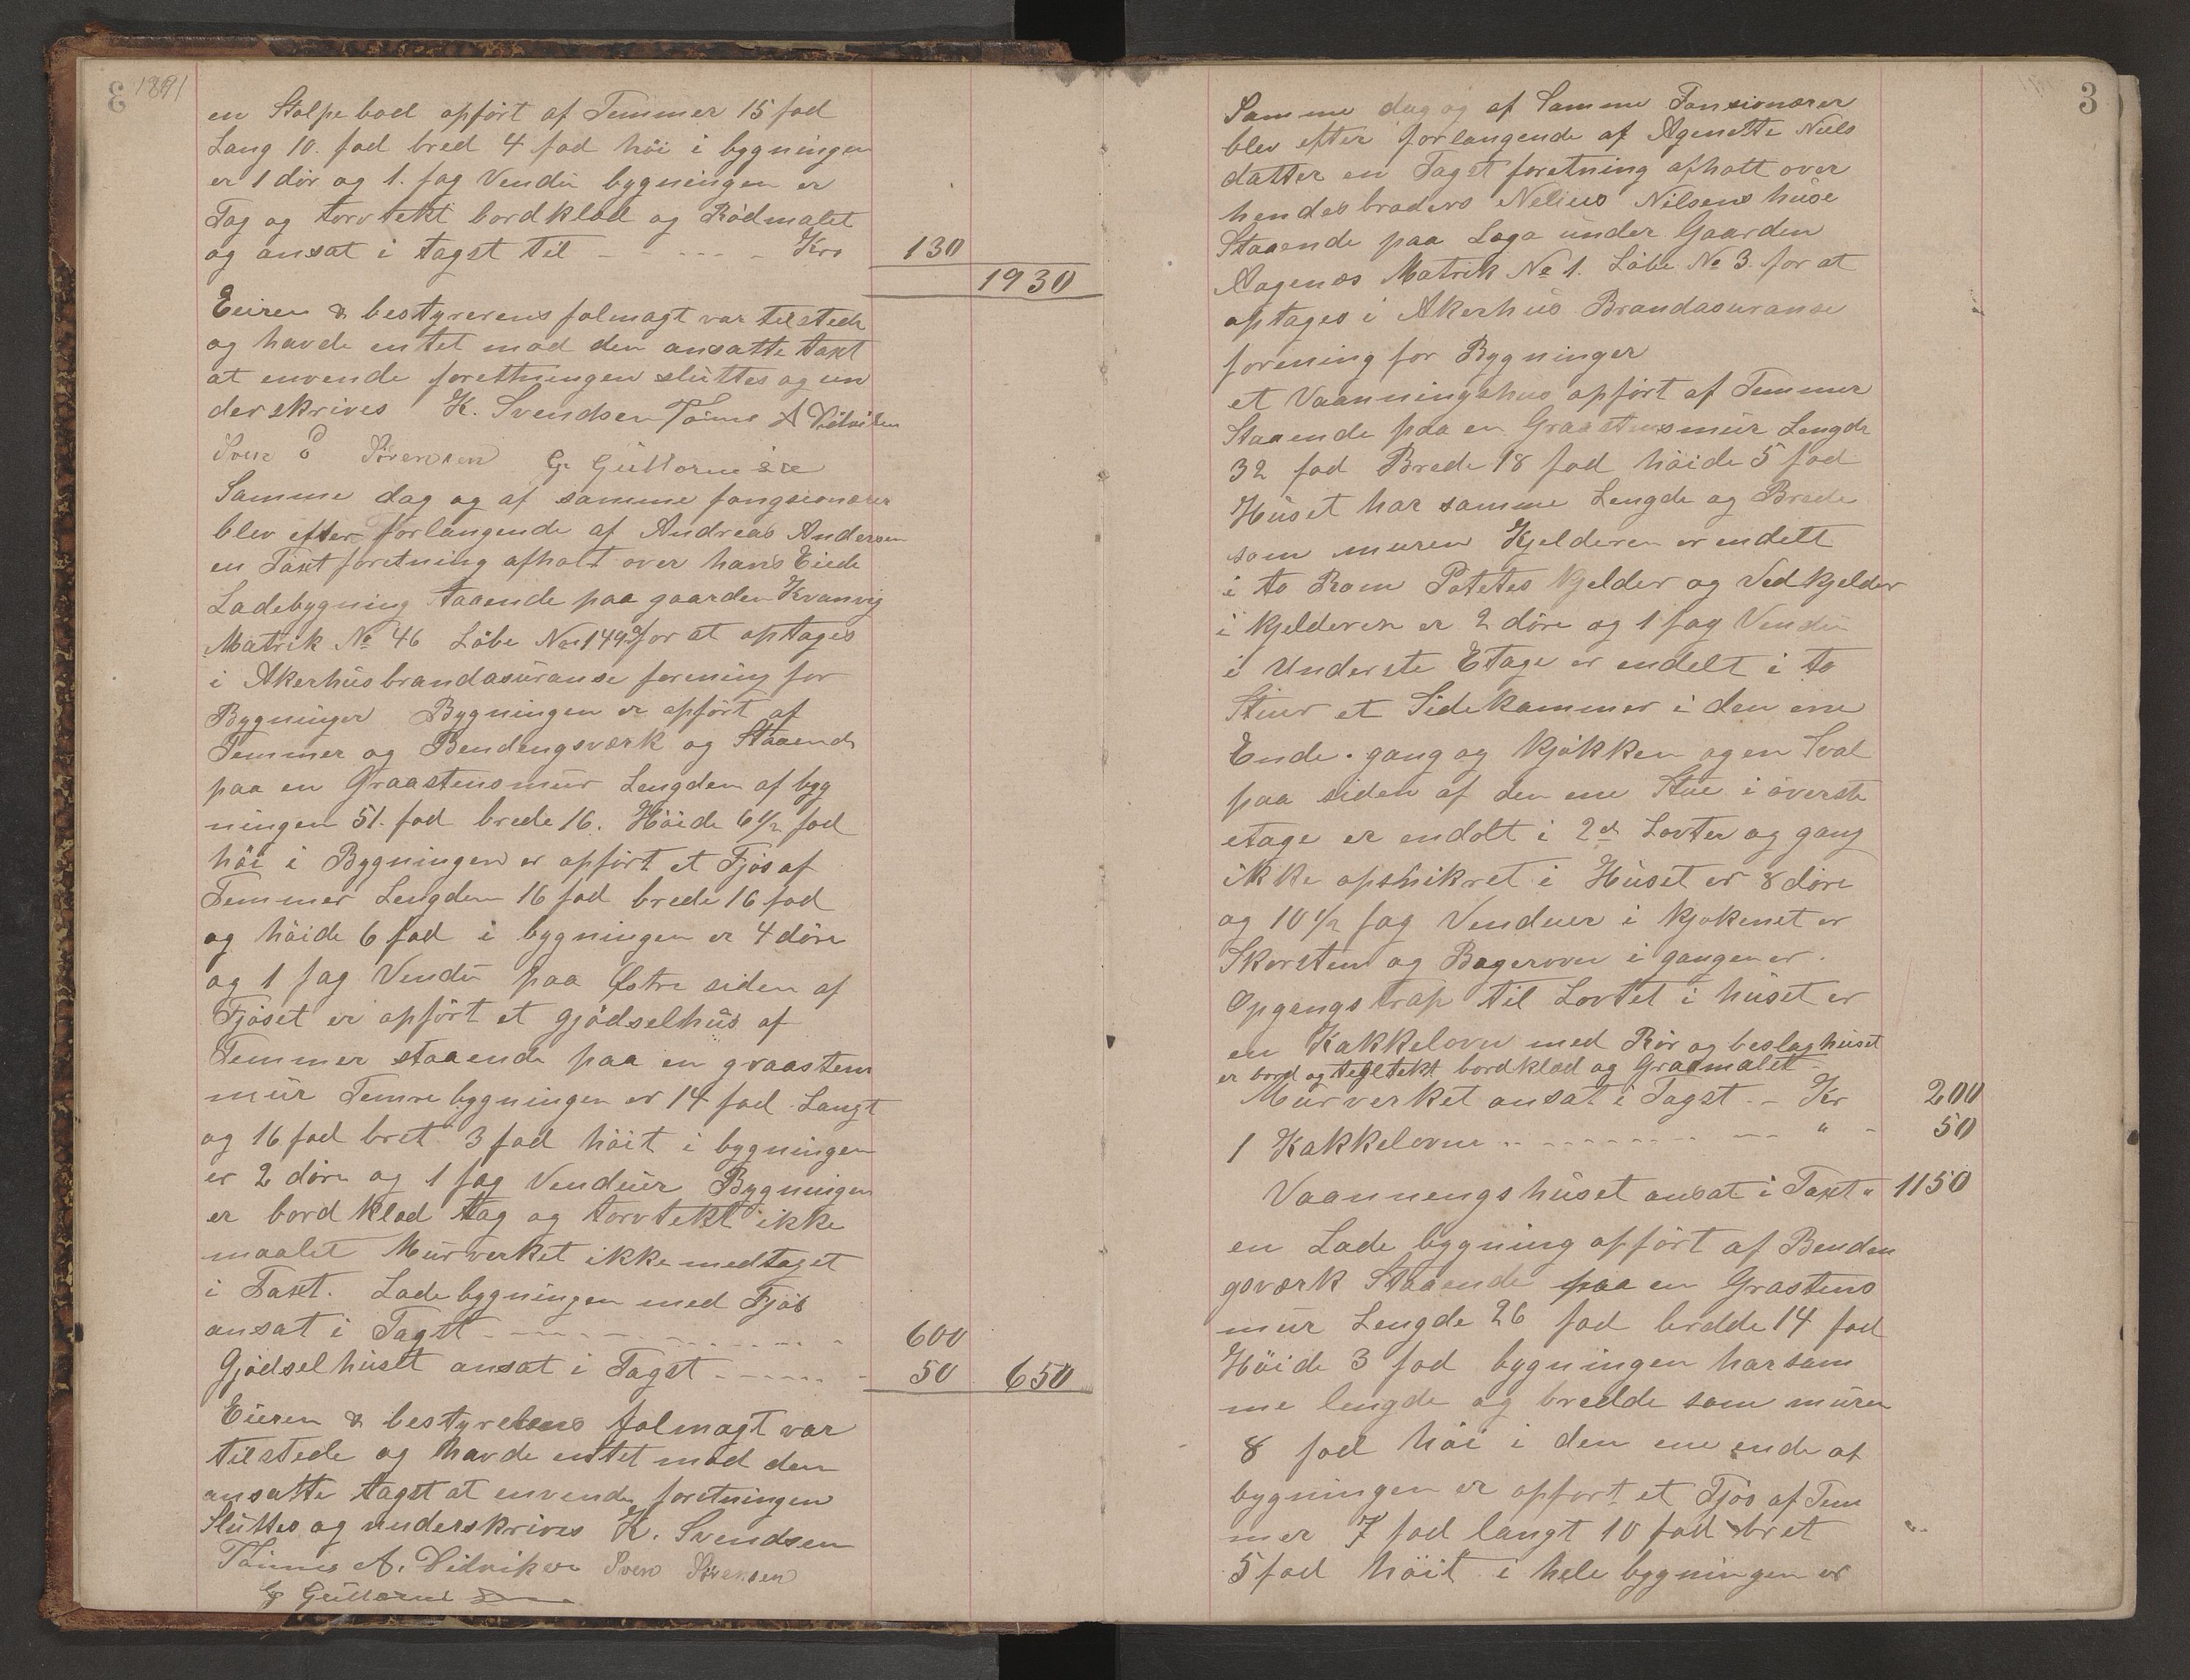 1891
en Stolpebod opført af Temmer 15 fod
Lang 10. fod bred 4 fod höi i bygningen
er 1 dör og 1. fag Vendü bygningen er
Tag og torvtekt bordklæd og Rödmalet
og ansat i tagst til - - - - - Kro 130
1930
Eieren & bestyrerens folmagt var tilstede
og havde entet mod den ansatte taxt
at envende foretningen sluttes og un
derskrives K. Svendsen Tönnes A Didriksen
Sven Sörensen G Guttormsen
Samme dag og af samme fongsionærer
blev efter forlangende af Andreas Andersen
en Taxt foretning afholt over hans Eiede
Ladebygning Staaende paa gaarden Kvanvig
Matrik No 46 Löbe No 149 for at optages
i Akerhus brandasuranse forening for
Bygninger Bygningen er opfört af
Temmer og Bendengsværk og Staaende
paa en Graastensmur Lengden af byg
ningen 51. fod brede 16. Höide 6 1/2 fod
höi i Bygningen er opfört et Fjös af
Temmer Lengden 16 fod brede 16 fod
og höide 6 fod i bygningen er 4 döre
og 1 fag Vendu paa östre siden af
Fjöset er opfört et gjödselhus af
Temmer staaende paa en graastens
mur Temrebygningen er 14 fod Langt
og 16 fod bret 3 fod höit i bygningen
er 2 döre og 1 fag Venduer Bygningen
er bord klæd tag og torvtekt ikke
maalet Murverket ikke medtaget
i Taxt. Ladebygningen med Fjös
ansat i Tagst - - - - - 600
Gjödselhuset ansat i Tagst - - - - - 50 650
Eieren & bestyrelsens folmagt var
tilstede og havde entet mod den
ansatte tagst at envende foretningen
Sluttes og underskrives K. Svendsen
Tönnes A. Didriksen Sven Sörensen
G Guttormsen
3
Samme dag og af Samme Fonsionærer
blev efter forlangende af Agenette Niels
datter en Tagst foretning afholt over
hendes broders Nelius Nilsens huse
Staaende paa Laga under Gaarden
Aagenæs Matrik No 1. Löbe No 3. for at
optages i Akerhus Brandasuranse
forening for Bygninger
et Vaanningshus opfört af Temmer
Staaende paa en Graastensmur Lengde
32 fod Brede 18 fod höide 5 fod
Huset har samme Lengde og Brede
som muren Kjelderen er endelt
i to Rom Potetes kjelder og Vedkjelder
i kjelderen er 2 döre og 1 fag Vendu
i Underste Etage er endelt i to
Stuer et Sidekammer i den ene
Ende. gang og Kjökken og en Sval
paa siden af den ene Stue i överste
etage er endelt i 2d Lovter og gang
ikke opsnikret i Huset er 8 döre
og 10 1/2 fag Venduer i kjökenet er
Skorsten og Bagerovn i gangen er.
Opgangstrap til Lovtet i huset er
en Kakkelovn med Rör og beslag huset
er bord og tegltekt bordklæd og Graamalet
Murverket ansat i Tagst - - Kr 200
1 Kakkelovn - - - - - " - 50
Vaannengshuset ansat i Taxt " 1150
en Lade bygning opfört af Benden
gsværk Staaende paa en Grastens
mur Lengde 26 fod bredde 14 fod
Höide 3 fod bygningen har sam
me lengde og bredde som muren
8 fod höi i den ene ende af
bygningen er opfört et Fjös af Tem
mer 7 fod langt 10 fod bret
5 fod höit i hele bygningen er